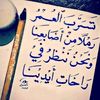 تسرَّبَ العُمرُ
رملاً من أصابعِنا
ونحنُ ننظرُ في
راحاتِ أيدينا